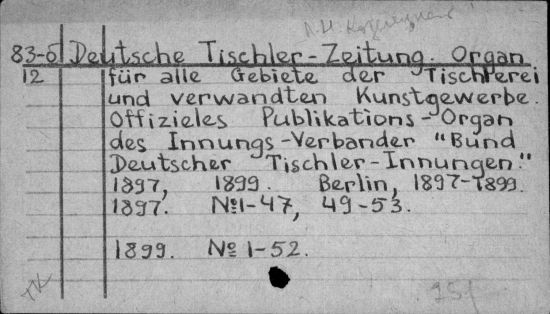 83-б Deutsche Tischler-Zeitung. Organ
12 für alle Gebiete der Tischlerei
und verwandten Kunstgewerbe.
Offizieles Publikations-Organ
des Innungs-Verbander "Bund
Deutscher Tischler-Innungen."
1897, 1899. Berlin, 1897-1899.
1897. №1-47, 49-53.
1899. № 1-52.